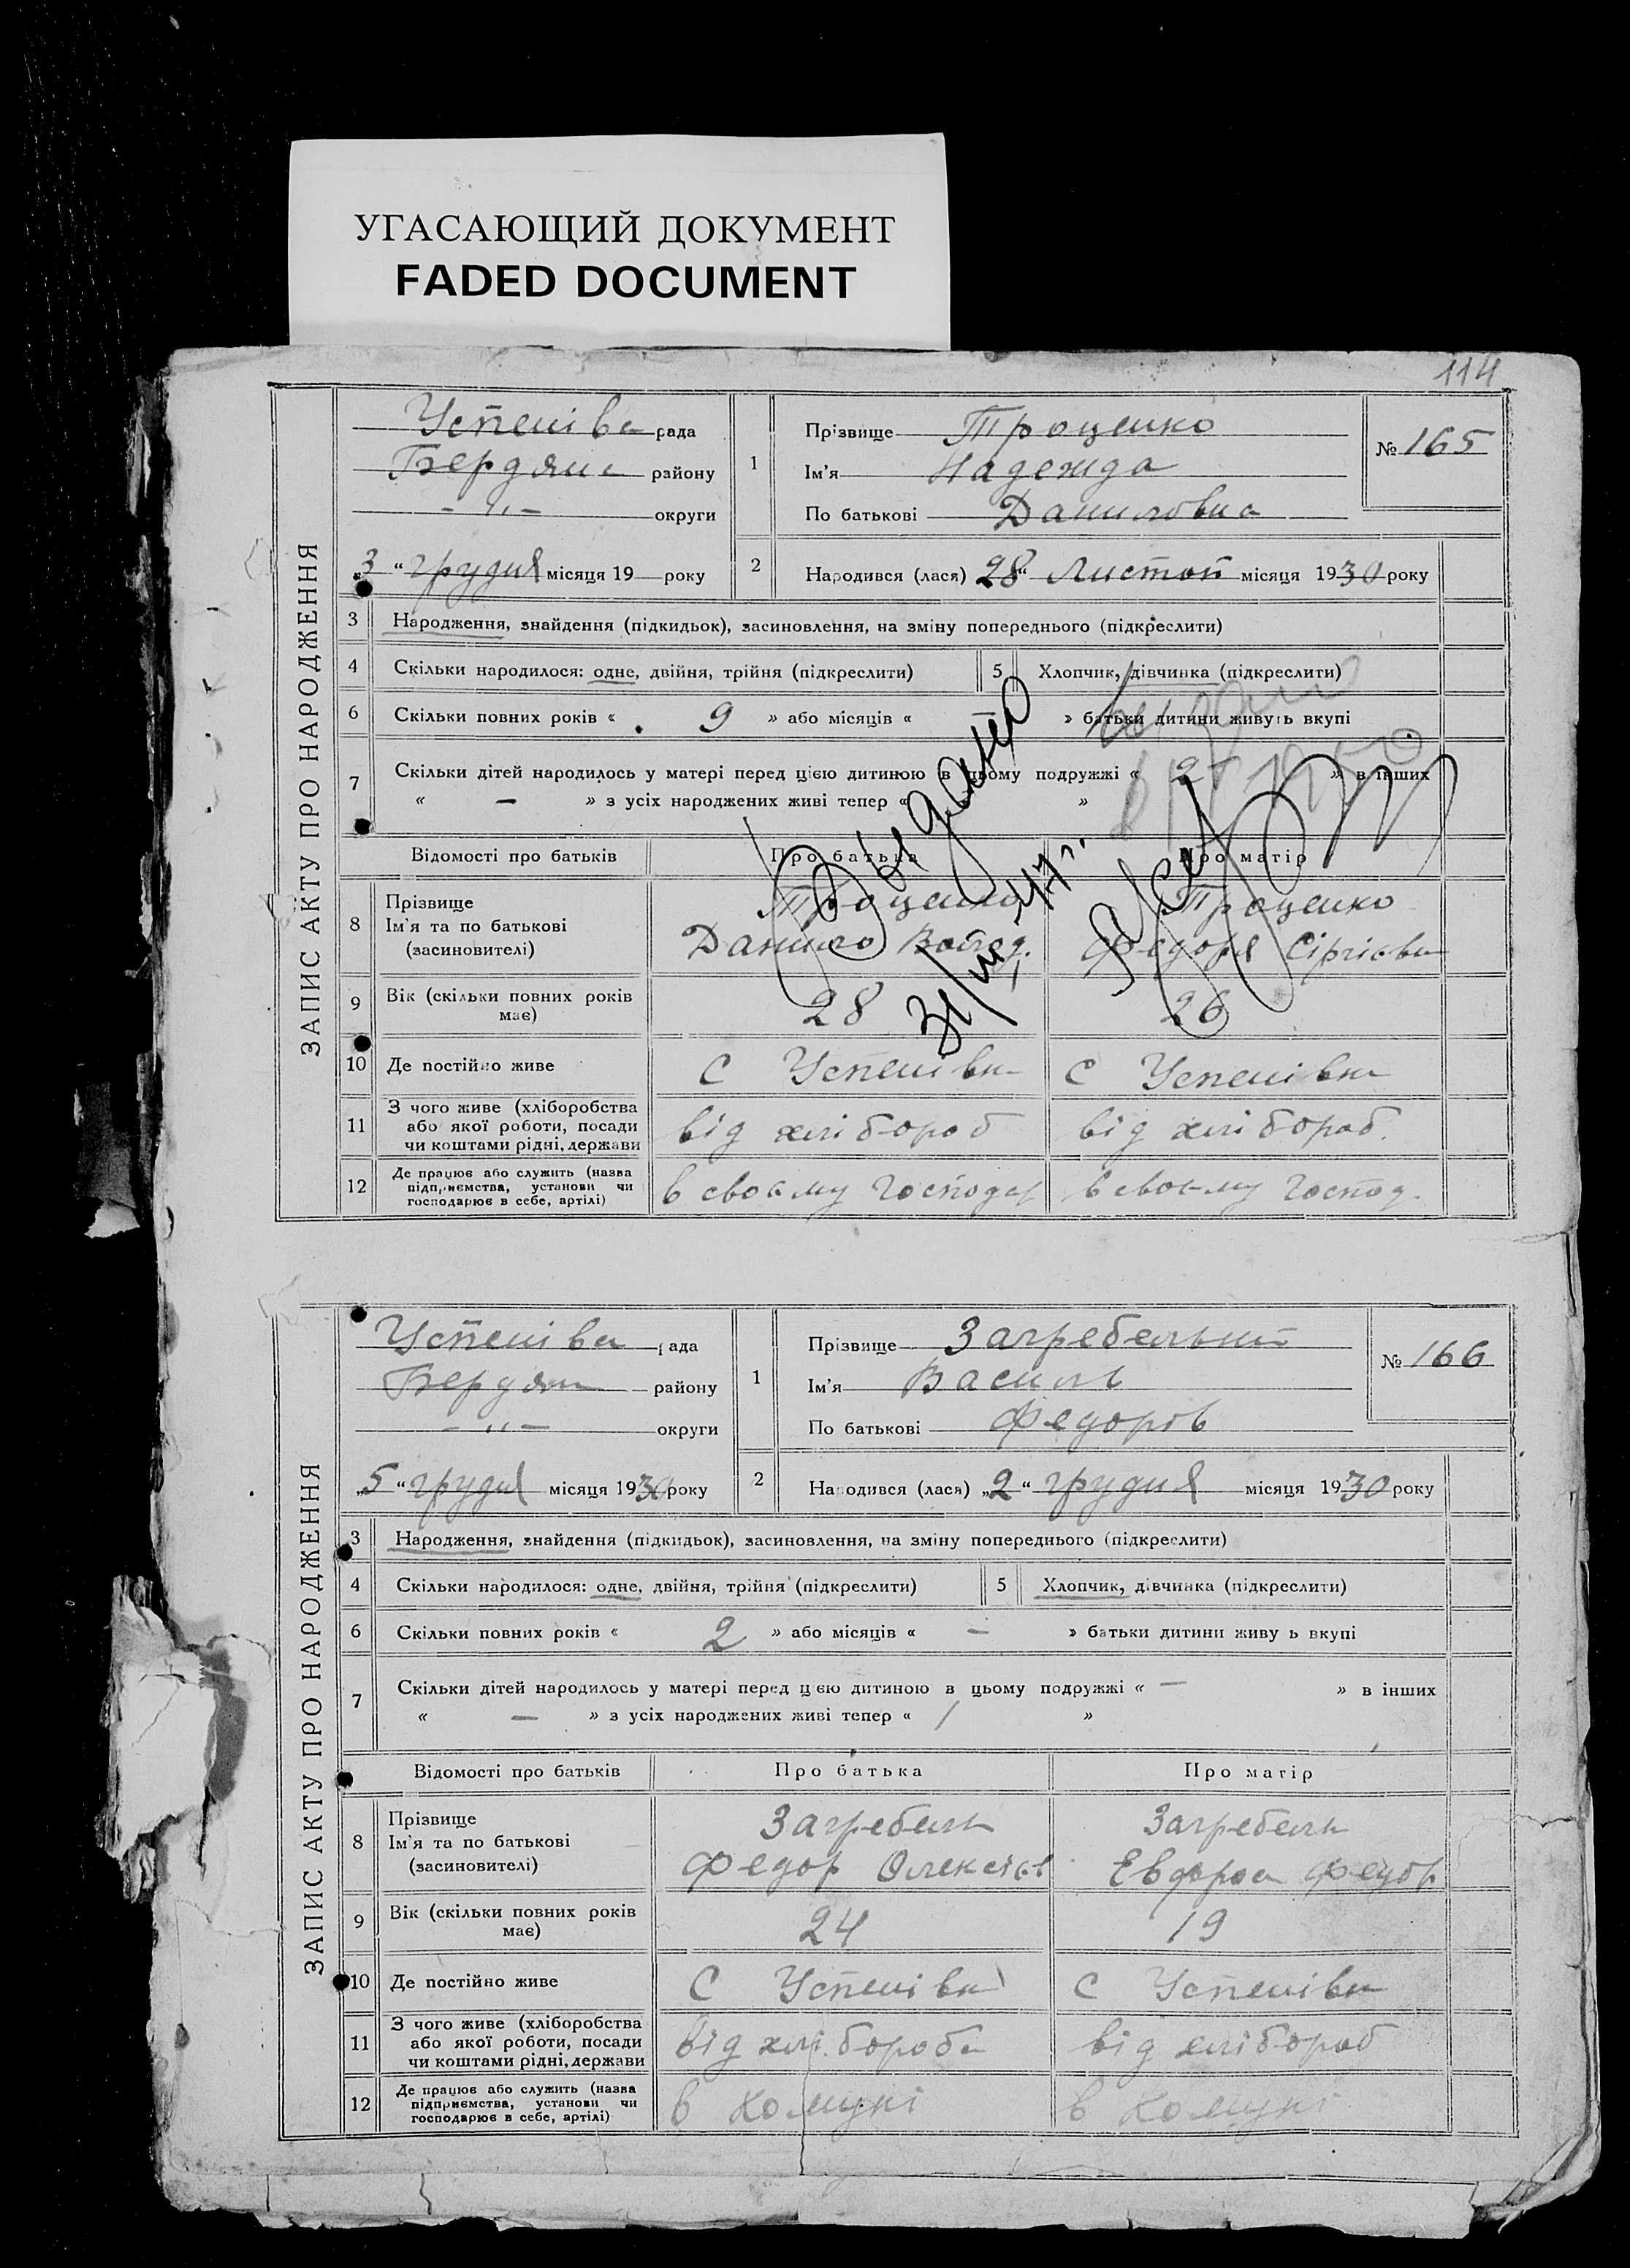 УГАСАЮЩИЙ ДОКУМЕНТ
FADED DOCUMENT
114
ЗАПИС АКТУ ПРО НАРОДЖЕННЯ
Успенівс рада
Бердянс району
- " - округи
„3 “ грудня місяця 19 року
1
Прізвище Троценко
Ім'я Надежда
По батькові Даниловна
№ 165
2
Народився (лася) 28 “ Листоп місяця 1930 року
3 Народження, знайдення (підкидьок), засиновлення, на зміну попереднього (підкреслити)
4 Скільки народилося: одне, двійня, трійня (підкреслити)
5 Хлопчик, дівчинка (підкреслити)
6 Скільки повних років « 9 » або місяців « — » батьки дитини живуть вкупі
7 Скільки дітей народилось у матері перед цією дитиною в цьому подружжі « 2 » в інших
« — » з усіх народжених живі тепер « »
Відомості про батьків Про батька Про матір
8 Прізвище
Ім'я та по батькові
(засновителі)
Троценко
Данило
Троценко
Федора Сіргієвн
9 Вік (скільки повних років має) 28 26
10 Де постійно живе с Успенівка с Успенівка
11 З чого живе (хліборобства
або якої роботи, посади
чи коштами рідні, держави
від хлібороб від хлібороб.
12 Де працює або служить (назва
підприємства, установи чи
господарює в себе, артілі)
в своєму господар в своєму господ.
31/III 47 г.
ЗАПИС АКТУ ПРО НАРОДЖЕННЯ
Успенівс рада
Бердян району
- " - округи
„5 “ грудня місяця 1930 року
1
Прізвище Загребельний
Ім'я Василь
По батькові Федоров
№ 166
2
Народився (лася) „2 “ грудня місяця 1930 року
3 Народження, знайдення (підкидьок), засиновлення, на зміну попереднього (підкреслити)
4 Скільки народилося: одне, двійня, трійня (підкреслити)
5 Хлопчик, дівчинка (підкреслити)
6 Скільки повних років « 2 » або місяців « — » батьки дитини живу ь вкупі
7 Скільки дітей народилось у матері перед цією дитиною в цьому подружжі « — » в інших
« — » з усіх народжених живі тепер « 1 »
Відомості про батьків Про батька Про матір
8 Прізвище
Ім'я та по батькові
(засиновителі)
Загребельн
Федор Олексієв
Загребельн
Федор
9 Вік (скільки повних років має) 24 19
10 Де постійно живе с Успенівка с Успенівка
11 З чого живе (хліборобства
або якої роботи, посади
чи коштами рідні, держави
від хлібороба від хлібороб
12 Де працює або служить (назва
підприємства, установи чи
господарює в себе, артілі)
в комуні в комуні